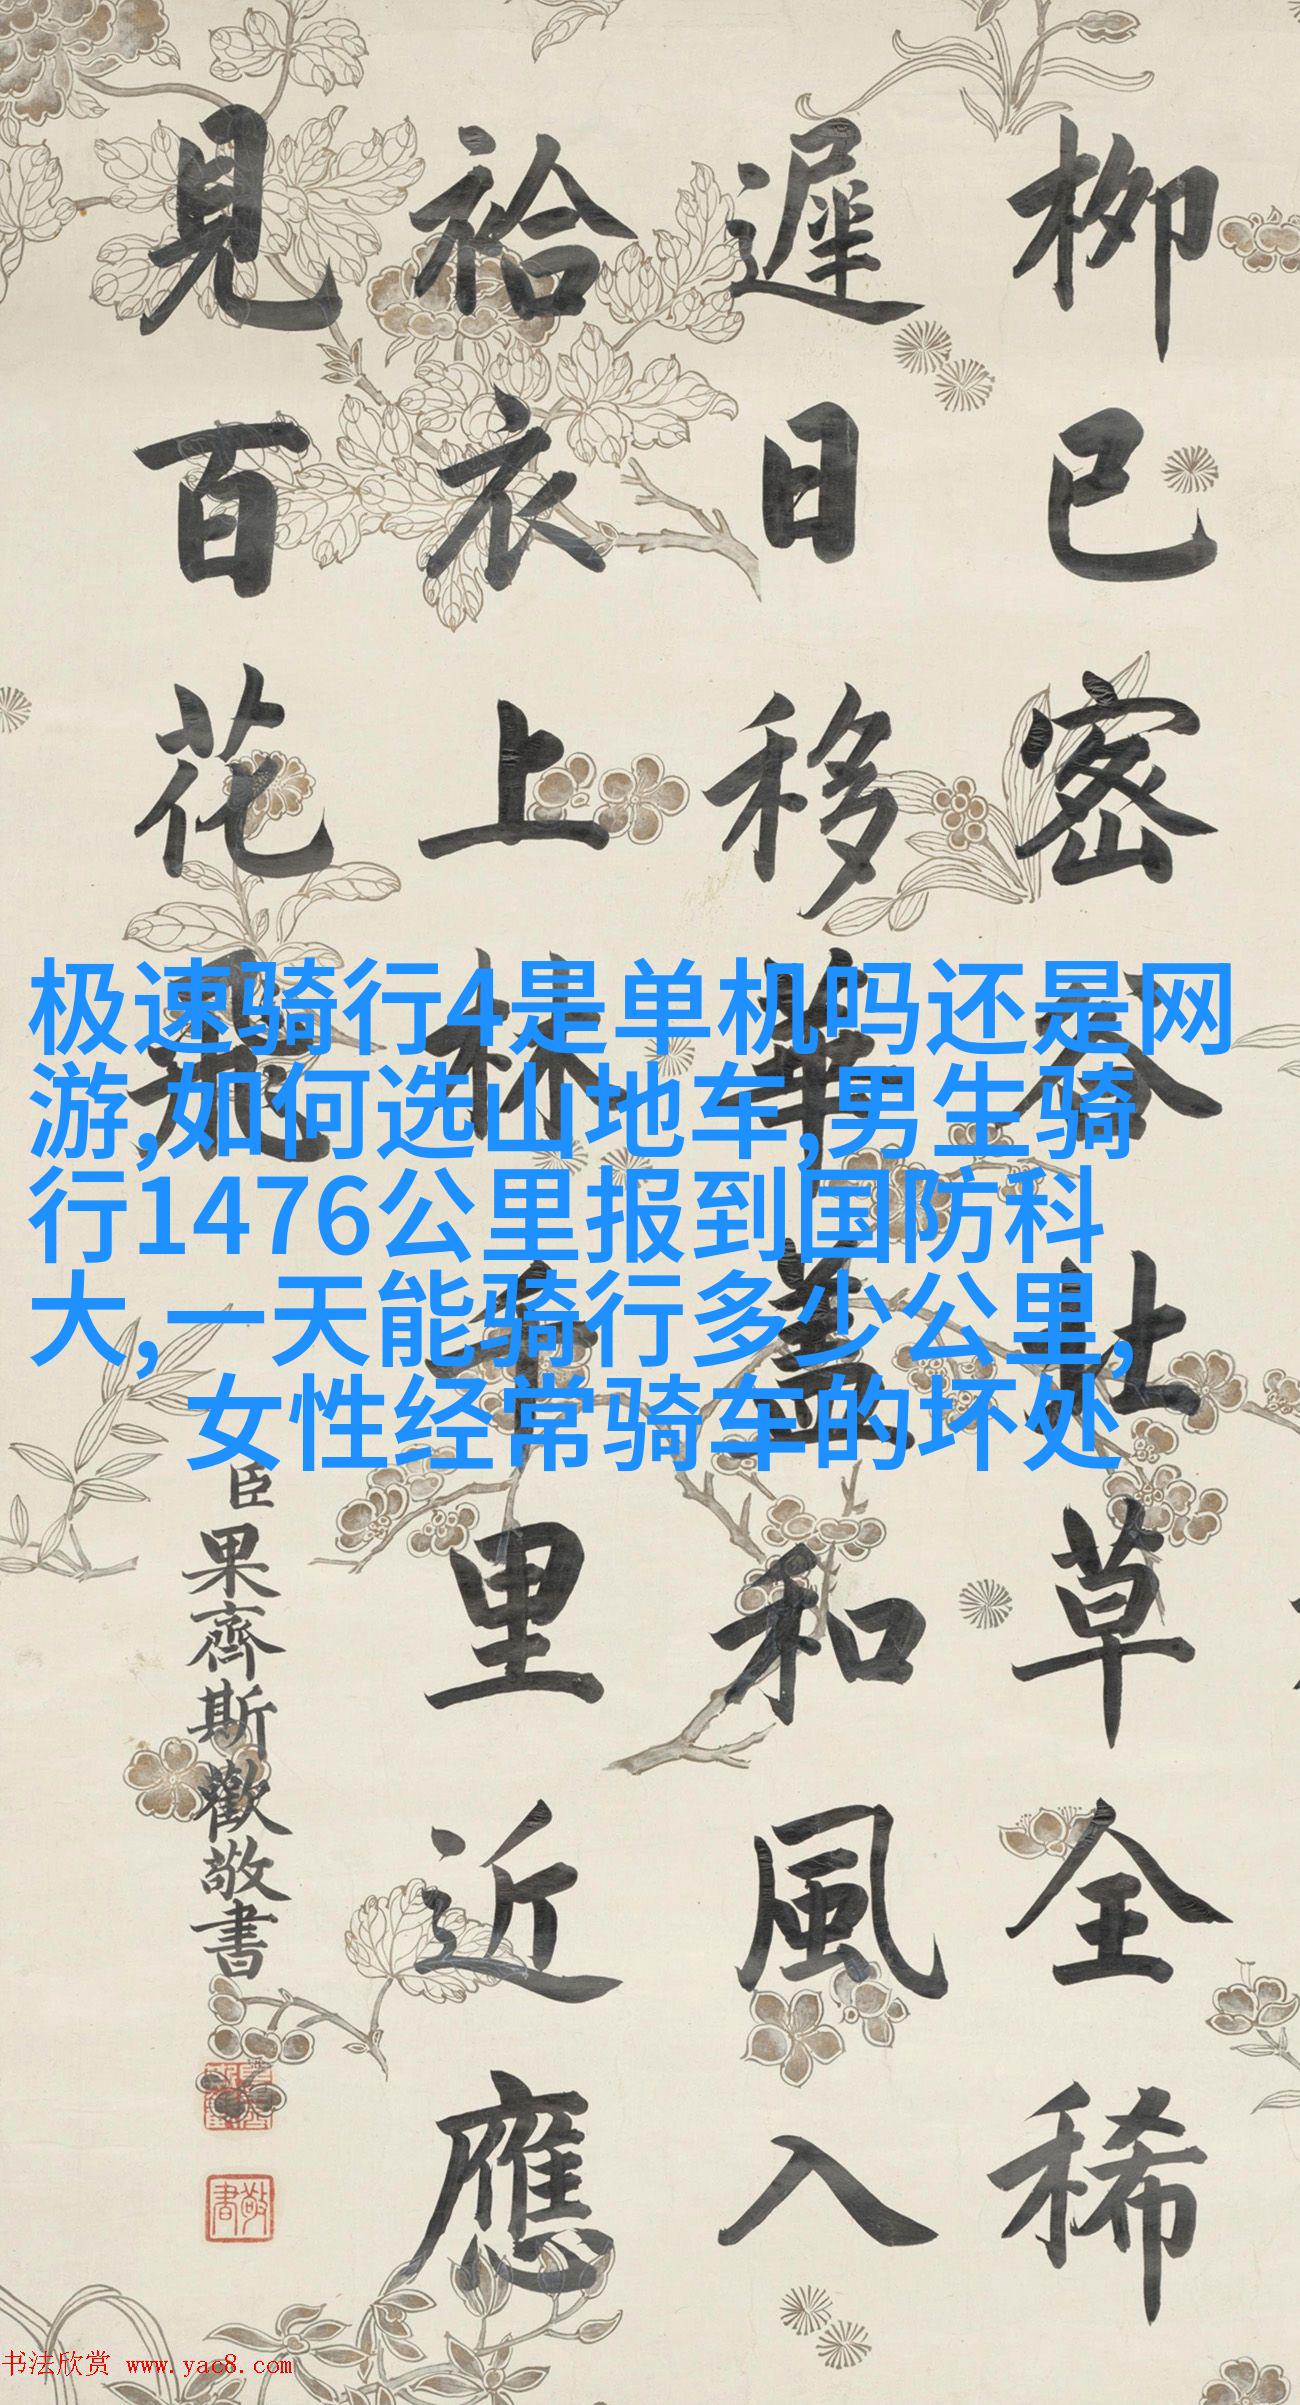 栁已密春社草全稀
遲日移華蓋和風入
袷衣上林千里近應
見百花飛
臣果齊斯歡敬書
敬書
极速骑行4是单机吗还是网
游,如何选山地车,男生骑
行1476公里报到国防科
大,一天能骑行多少公里,
女性经常骑车的坏处
书法欣赏 www.yac8.com